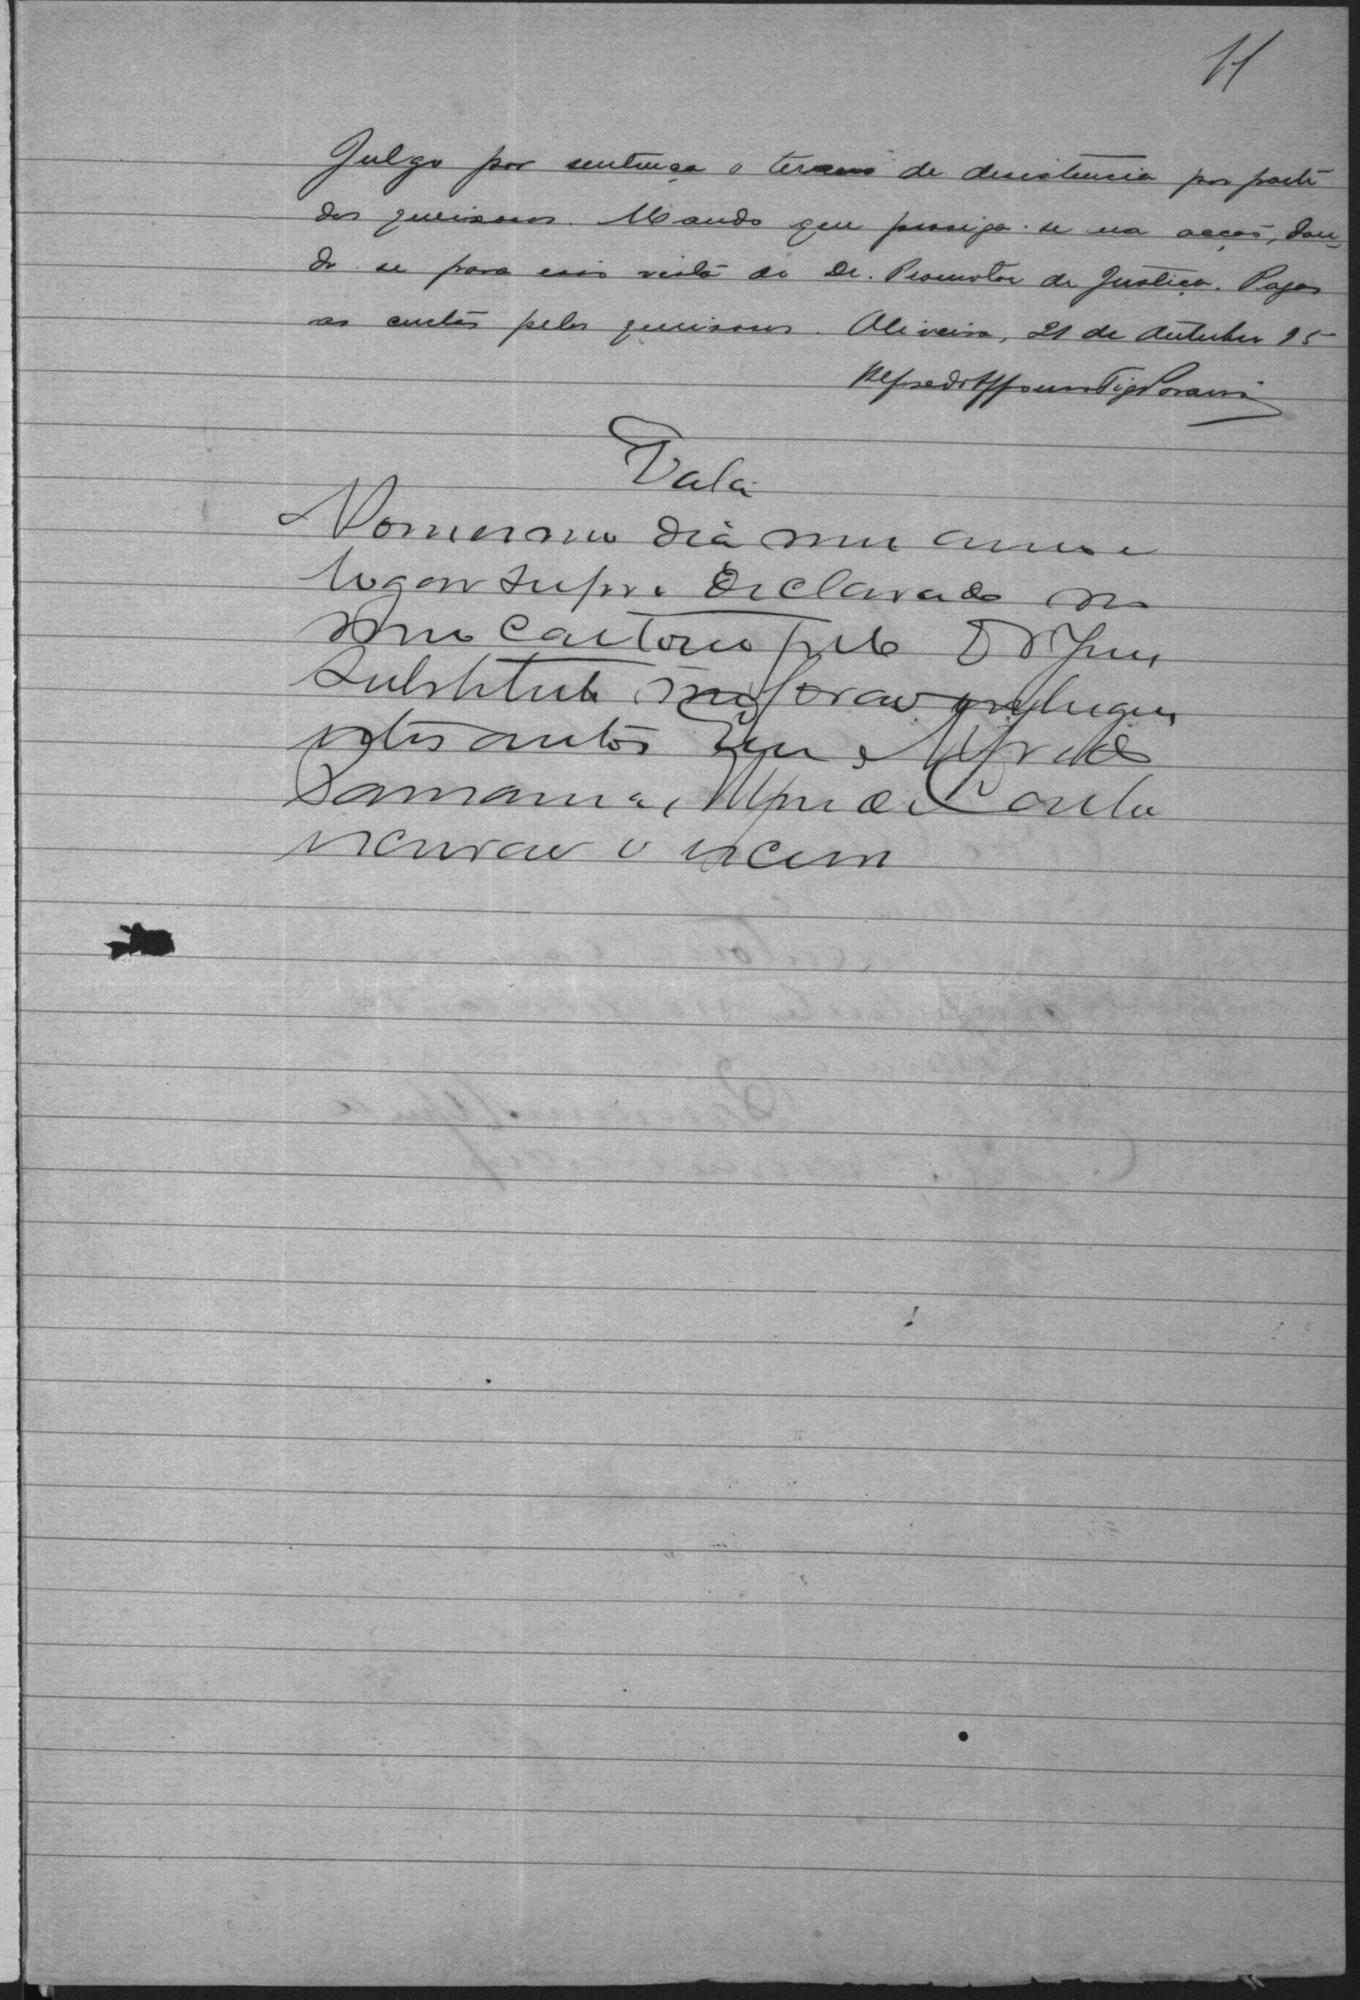 11
Julgo por sentença o termo de desistencia por parte
dos queixosos. Mando que prosiga-se na acção, dan-
do-se para isso vista ao Dr. Promotor de Justiça. Pagas
as custas pelos queixosos. Oliveira, 21 de Outubro 95
Alfredo Affonso
Data
No mesmo dia mez anno e
logar supra declarado em
meu cartorio pelo Dr Juiz
Substituto me forao entregues
estes autos Eu Alfredo
escrivao o escrevi